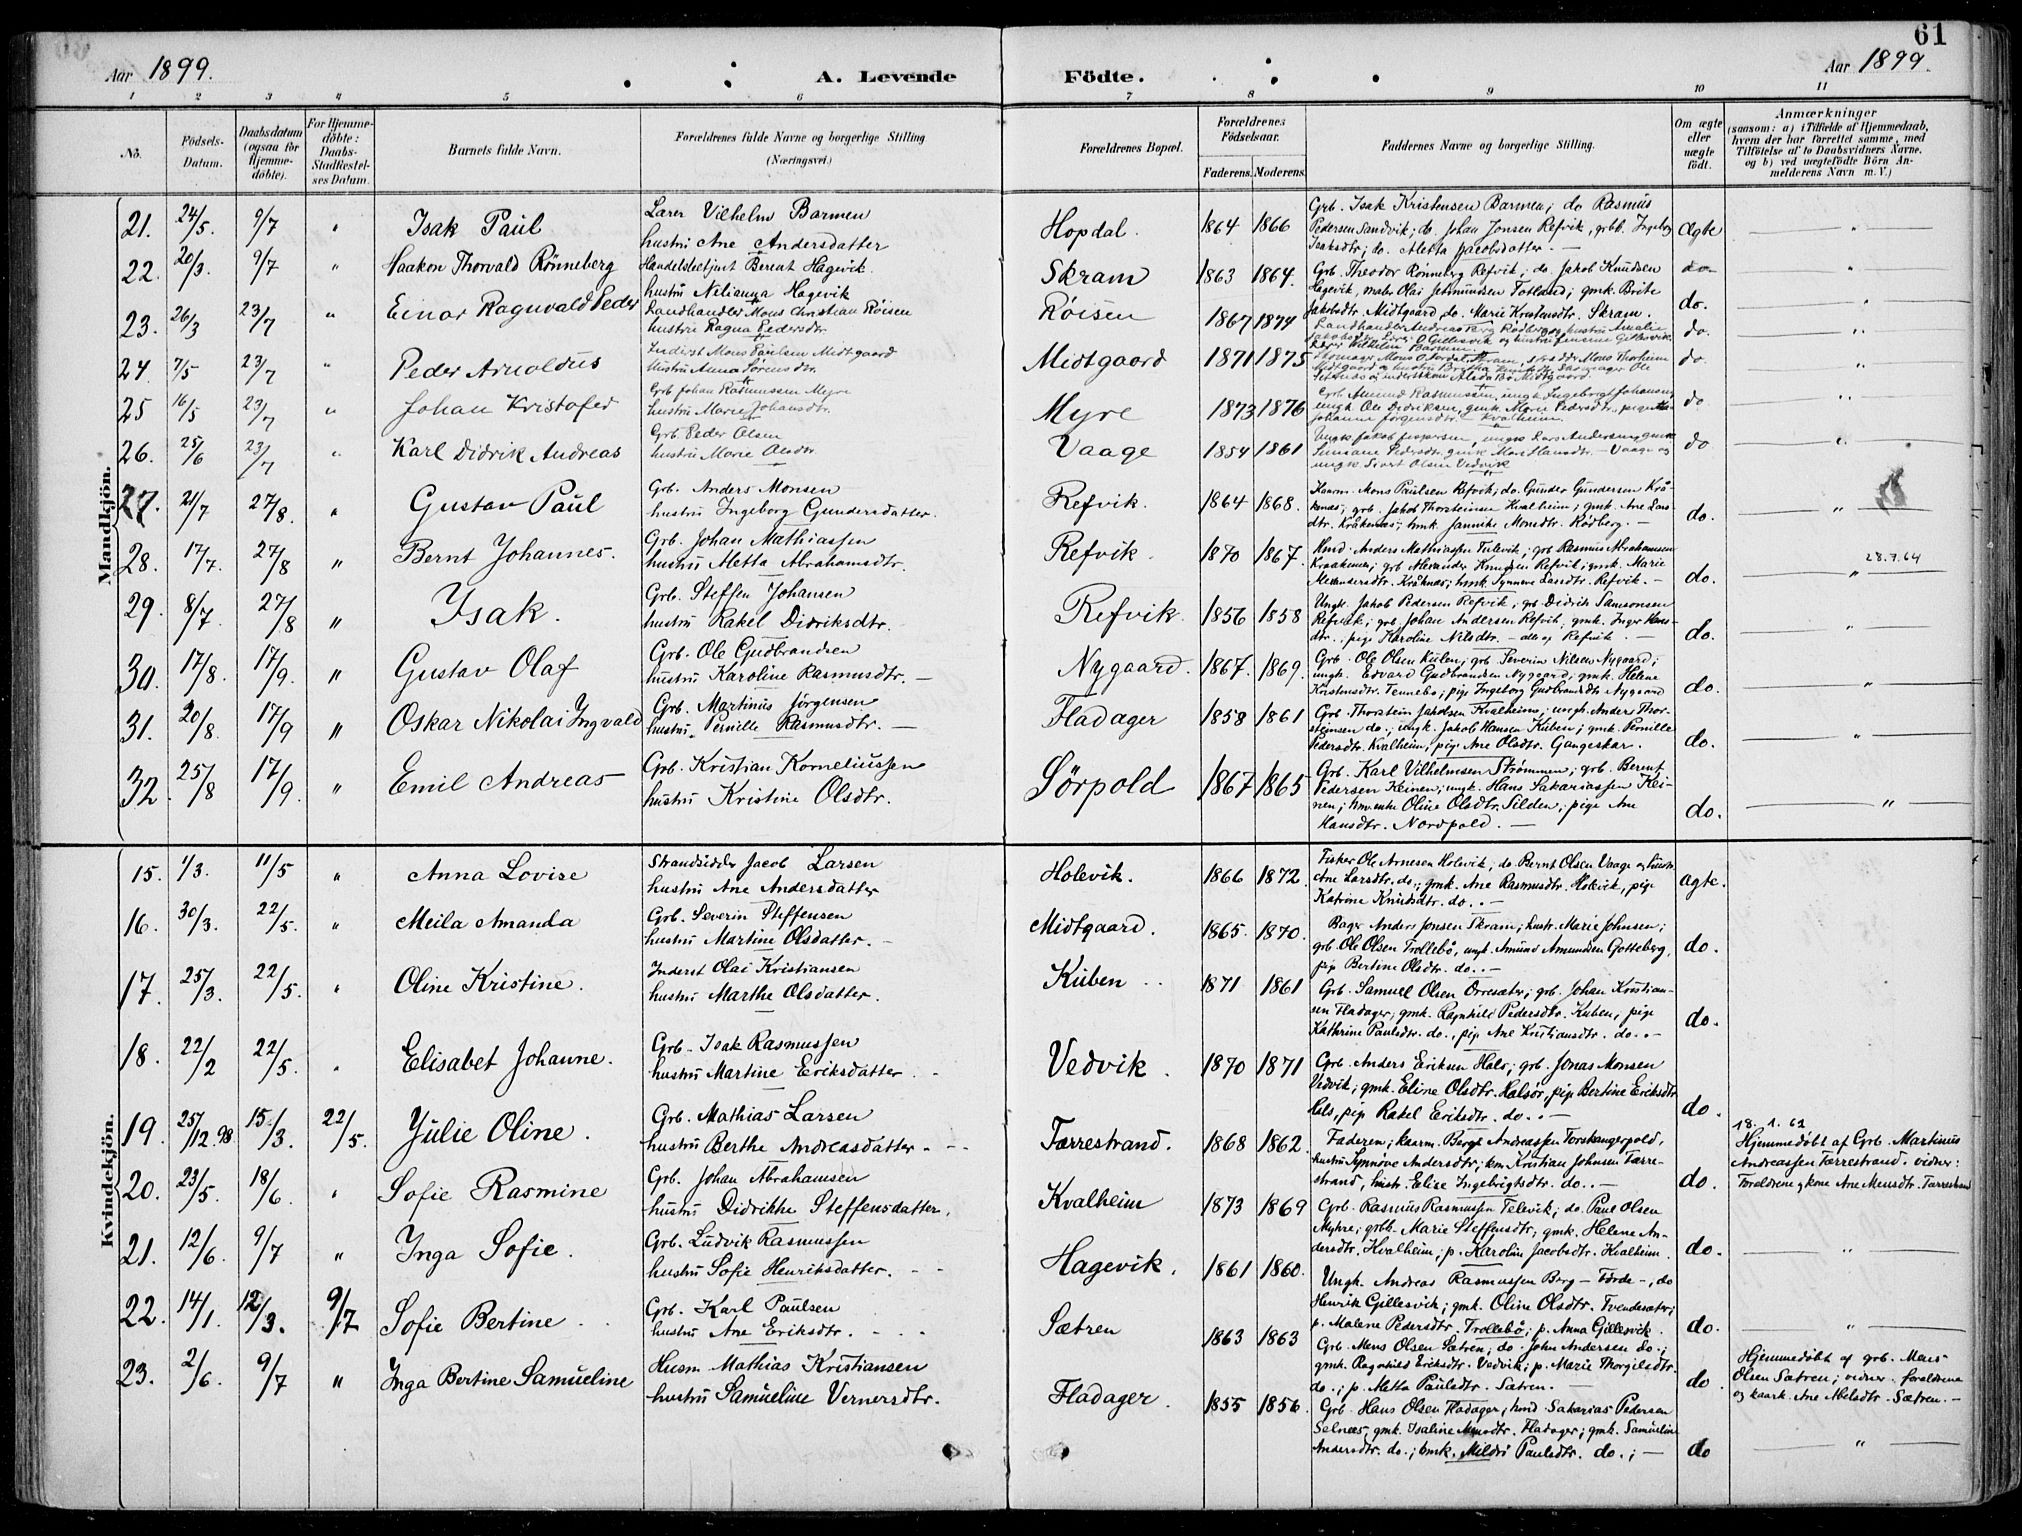 61
Aar 1899.
A. Levende Födte.
Aar 1899.
1 2 3 4 5 6 7 8 9 10 11
No.
Födsels-Datum.
Daabsdatum (ogsaa for Hjemmedöbte).
For Hjemmedöbte: Daabs-Stadfæstelses Datum.
Barnets fulde Navn.
Forældrenes fulde Navne og borgerlige Stilling (Næringsvei.)
Forældrenes Bopæl.
Forældrenes Födselsaar.
Faderens. Moderens.
Faddernes Navne og borgerlige Stilling.
Om ægte eller uægte födt.
Anmærkninger (saasom: a) i Tilfælde af Hjemmedaab, hvem der har forrettet samme, med Tilföielse af to Daabsvidners Navne, og b) ved uægtefödte Börn Anmelderens Navn m. V.)
Mandkjön.
21. 24/5. 9/7 " Isak Paul
Lærer Vilhelm Barmen
hustru Ane Andersdatter
Hopdal. 1864 1866
Grb. Isak Kristensen Barmen; do Rasmus
Pedersen Sandvik; do. Johan Jonsen Refvik, grbk. Ingeborg
Isaksdtr; do. Aletta Jacobsdatter. —
Ægte
22. 20/3. 9/7 " Haakon Thorvald Rönneberg
Handelsbetjent Berent Hagevik.
hustru Nilianna Hagevik
Skram 1863 1864.
Grb. Theodor Rönneberg Refvik; do. Jakob Knudsen
Hagevik, maler Olai Jetmundsen Totland; gmk. Brite
Jakobsdtr. Midtgaard, do. Marie Kristensdtr. Skram.
do
23. 26/3 23/7 " Einar Ragnvald Peder
Landhandler Mons Christian Röisen
hustru Ragna Pedersdtr.
Röisen 1867 1874
do.
24. 7/5 23/7 " Peder Arnoldus
Inderst Mons Paulsen Midtgaard
hustru Anna Sörensdtr.
Midtgaard 1871 1875
do
25 16/5 23/7 " Johan Kristofer
Grb Johan Rasmussen Myre
hustru Marie Johansdtr.
Myre 1873 1876
Grb. Amund Rasmussen, ungk. Ingebrigt Johansen,
ungk. Ole Didriksen, gmk. Marie Pedersdtr., pige
Johanne Jörgensdtr. — Kvalheim.
do
26. 25/6 23/7 " Karl Didrik Andreas
Grb Peder Olsen
hustru Marie Olsdtr.
Vaage 1854 1861
Ungk Jakob Jespersen, ungk Lars Andersen, gmk
Pedersdtr. gmk Mari Hansdtr. — Vaage og
ungk Sivert Olsen Vedvik
do
27. 21/7 27/8. " Gustav Paul
Grb. Anders Monsen
hustru Ingeborg Gundersdatter.
Refvik. 1864 1868.
Kaarm. Mons Paulsen Refvik; do. Gunder Gundersen Krå-
kenæs; grb. Jakob Thorsteinsen Kvalheim; gmk. Ane Lars-
dtr. Kråkenæs; hmk. Jannike Monsdtr. Rödberg. —
do.
28. 17/7. 27/8 " Bernt Johannes.
Grb. Johan Mathiassen
hustru Aletta Abrahamsdtr.
Refvik. 1870 1867.
Hmd. Anders Mathiassen Tulevik; grb Rasmus Abrahamsen
Kraakenes; grb Alexander Knudsen Refvik; gmk. Marie
Alexandersdtr. Kråknæs; hmk. Synneve Larsdtr. Refvik. —
do.
28.7.64
29. 8/7 27/8 " Isak.
Grb. Steffen Johansen
hustru Rakel Didriksdtr.
Refvik. 1856 1858
Ungk. Jakob Pedersen Refvik; grb. Didrik Samsonsen
Refvik; grb. Johan Andersen Refvik, gmk. Inger Hans-
dtr., pige Karoline Nilsdtr. — alle af Refvik. —
do.
30. 17/8. 17/9. " Gustav Olaf
Grb. Ole Gudbrandsen
hustru Karoline Rasmusdtr. —
Nygaard. 1867. 1869.
Grb. Ole Olsen Kulen; grb. Severin Nilsen Nygaard;
ungk. Edvard Gudbrandsen Nygaard; gmk. Helene
Kristensdtr. Tennebö; pige Ingeborg Gudbrandsdtr Nygaard
do.
31. 20/8. 17/9 " Oskar Nikolai Ingvald
Grb. Martinus Jörgensen
hustru Pernille Rasmusdtr. —
Fladager 1858 1861
Grb. Thorstein Jakobsen Kvalheim; ungk. Anders Thor-
steinsen do.; ungk. Jakob Hansen Kuben; gmk. Pernille
Pedersdtr. Kvalheim, pige Ane Olsdtr. Gangeskar.
do.
32. 25/8 17/9. " Emil Andreas
Grb. Kristian Korneliussen
hustru Kristine Olsdtr.
Sörpold 1867 1865
Grb. Karl Vilhelmsen Strömmen; grb. Berent
Pedersen Keinen; ungk. Hans Sakariassen Kei-
nen; Oline Olsdtr. Silden; pige Ane
Hansdtr. Nordpold. —
do.
Kvindekjön.
15. 1/3. 11/5 " Anna Lovise
Strandsidder Jacob Larsen
hustru Ane Andersdatter
Holevik. 1866 1872.
Fisker Ole Arnesen Holevik; do. Bernt Olsen Vaage og hustru
Ane Larsdtr. do.; gmk. Ane Rasmusdtr. Holevik, pige
Katrine Knudsdtr. do. . —
ægte.
16. 30/3. 22/5. " Meila Amanda
Grb. Severin Steffensen
hustru Martine Olsdatter. —
Midtgaard. 1865. 1870.
Bager Anders Jonsen Skram; hustr. Marie Johnsen;
grb. Ole Olsen Trollebö, ungk. Amund Amundsen Gotteberg,
pige Bertine Olsdtr. do. . —
do.
17. 25/3. 22/5. " Oline Kristine.
Inderst Olai Kristiansen
hustru Marthe Olsdatter.
Kuben 1871 1861
Grb. Samuel Olsen Orresæter; grb. Johan Kristian-
sen Fladager; gmk. Ragnhild Pedersdtr. Kuben; pige
Kathrine Paulsdtr. do., pige Ane Kristiansdtr. do. . —
do.
18. 22/2 22/5. " Elisabet Johanne.
Grb. Isak Rasmussen
hustru Martine Eriksdatter
Vedvik. 1870 1871
Grb. Anders Eriksen Hals; grb. Jonas Monsen
Vedvik; gmk. Eline Olsdtr. Halsör, pige Bertine Eriksdtr
Hals, pige Rakel Eriksdtr. do. . —
do.
19. 25/12.98. 15/3. 22/5. Julie Oline.
Grb. Mathias Larsen
hustru Berthe Andreasdatter.
Færrestrand. 1868 1862.
Faderen; kaarm. Bergt Andreassen Torskangerpold,
hustru Synnöve Andersdtr; Kristian Johnsen Færre-
strand, hustr. Elise Ingebrigtsdtr. do. . —
do.
18. 1. 62
Hjemmedöbt af Grb. Martinus
Andreassen Færrestrand. vidner:
Forældrene og kone Ane Mensdtr. Færrestrand
20. 23/5. 18/6. " Sofie Rasmine
Grb. Johan Abrahamsen
hustru Didrikke Steffensdatter.
Kvalheim 1873 1869
Grb. Rasmus Rasmussen Televik; do. Paul Olsen
Myhre; grbk. Marie Steffensdtr; gmk. Helene An-
dersdtr. Kvalheim; p. Karolin Jacobsdtr. Kvalheim.
do.
21. 12/6. 9/7 " Inga Sofie.
Grb. Ludvik Rasmussen
hustru Sofie Henriksdatter.
Hagevik. 1861 1860.
Ungk. Andreas Rasmussen Berg — Förde —, do
Henrik Gjillesvik; gmk. Oline Olsdtr. Tvendesæter;
p. Malene Pedersdtr. Trollebö; p. Anna Gjillesvik.
do.
22. 14/1. 12/3. 9/7 Sofie Bertine
Grb. Karl Paulsen
hustru Ane Eriksdtr.
Sætren 1863 1863
Grb. Mens Olsen Sætren; do. John Andersen do.;
gmk. Ragnhild Eriksdtr. Vedvik; p. Marie Thorgilsdtr
do.; p. Metta Paulsdtr. Sætren. —
do
Hjemmedöbt af grb. Mens
Olsen Sætren; vidner. forældrene
og kaark. Ane Abelsdtr. Sætren. —
23. 2/6. 9/7 " Inga Bertine Samueline
Husm Mathias Kristiansen
hustru Samueline Vernersdtr.
Fladager. 1855 1856.
Grb. Hans Olsen Fladager; hmd. Sakarias Pedersen
Selnæs, gmk. Isaline Monsdtr. Fladager; gmk. Samueline
Andersdtr. do.; hmk. Mildri Paulsdtr. do.; —
do